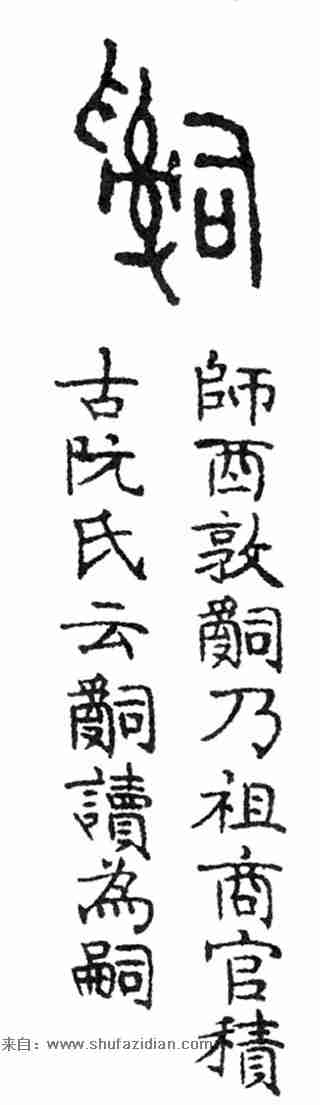 𤔲
師酉敦𤔲乃祖商官積
古阮氏云𤔲讀為嗣
来自：www.shufazidian.com